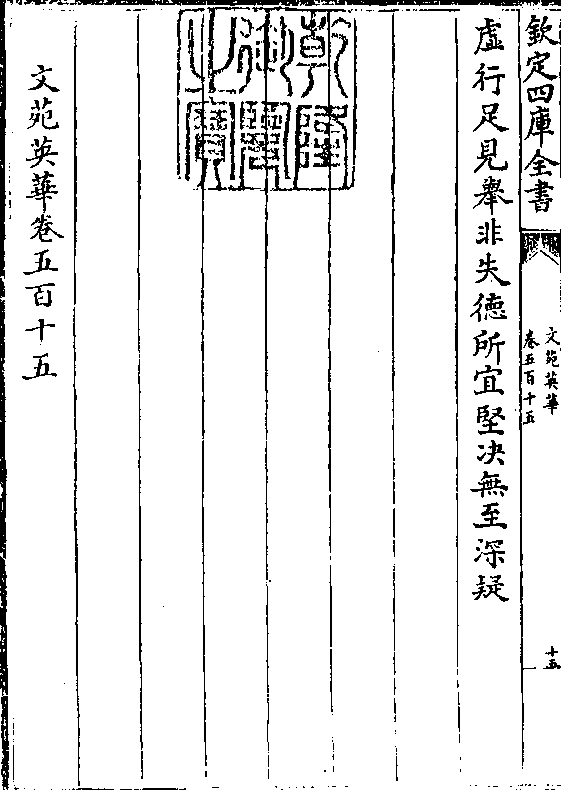 欽定四庫全書
文苑英華
卷五百十五
十五
虛行足見舉非失德所宜堅决無至深疑
乾隆御覽之寶
文苑英華卷五百十五